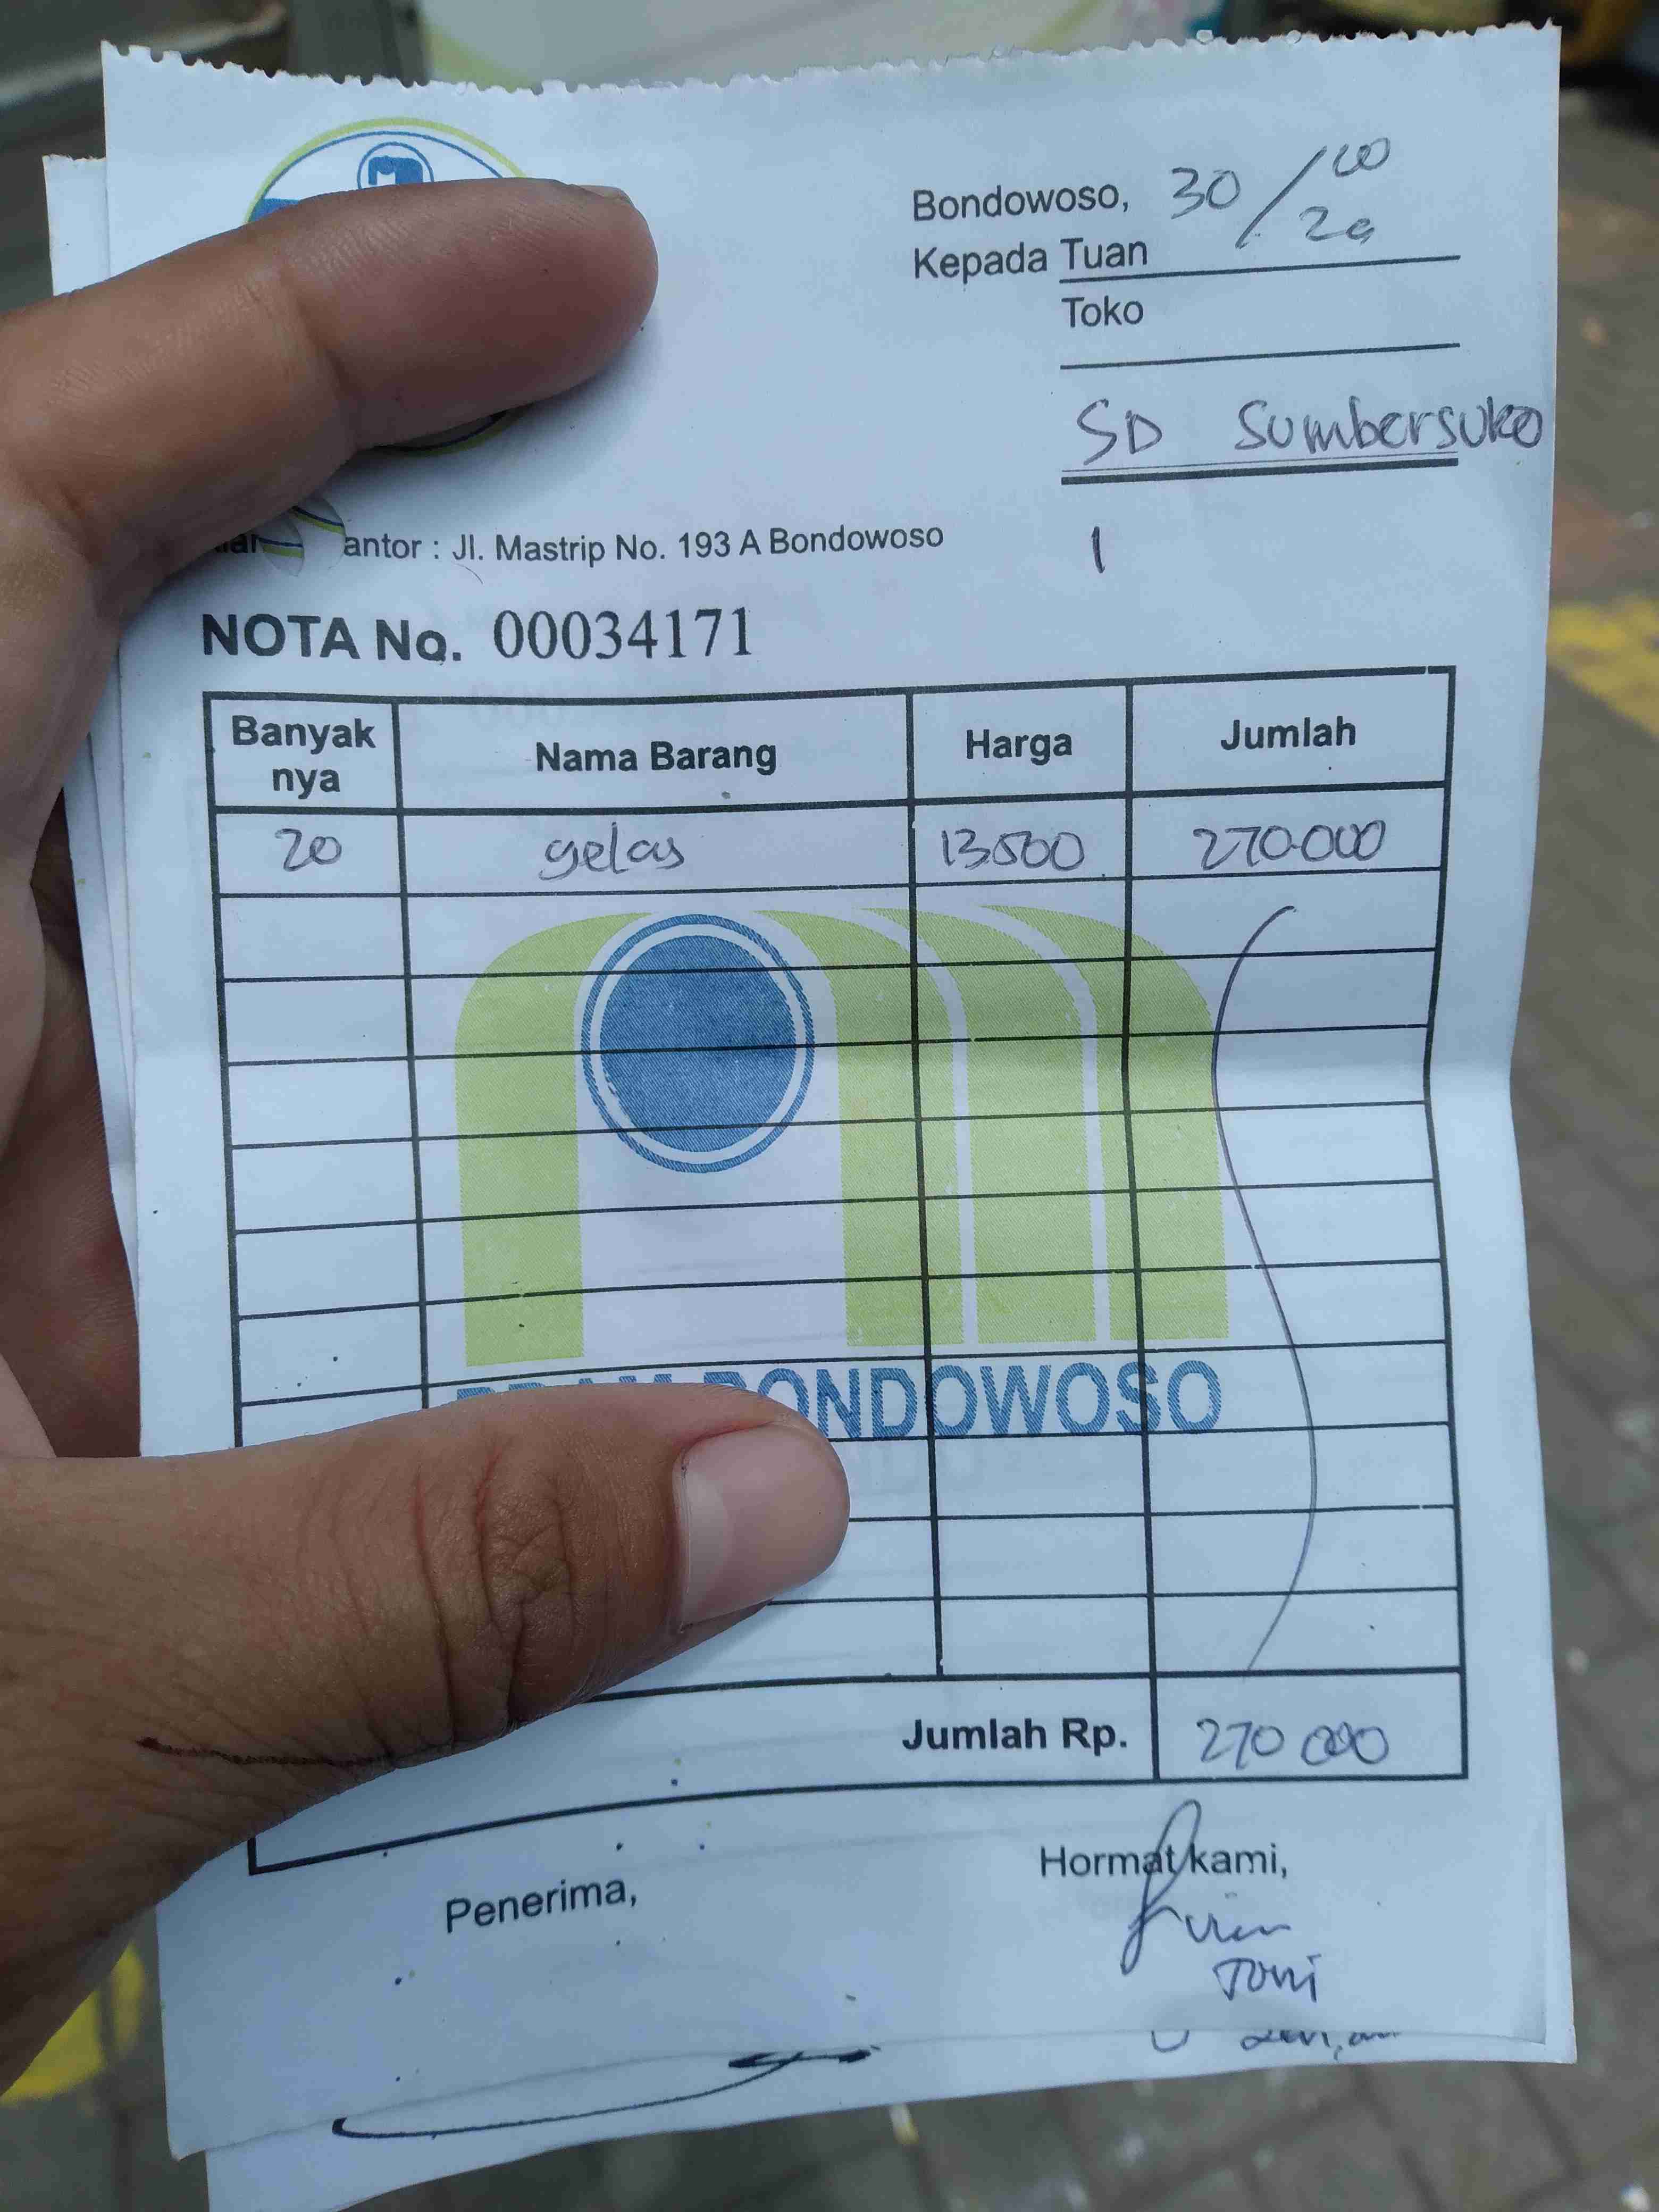 M
Bondowoso, 30/
Kepada Tuan
Toko
SD Sumbersuko
antor : Jl. Mastrip No. 193 A Bondowoso
1
NOTA No. 00034171
Banyak nya Nama Barang Harga Jumlah
20 gelas 13500 270.000
BONDOWOSO
Jumlah Rp. 270 000
Penerima,
Hormat kami,
Toni